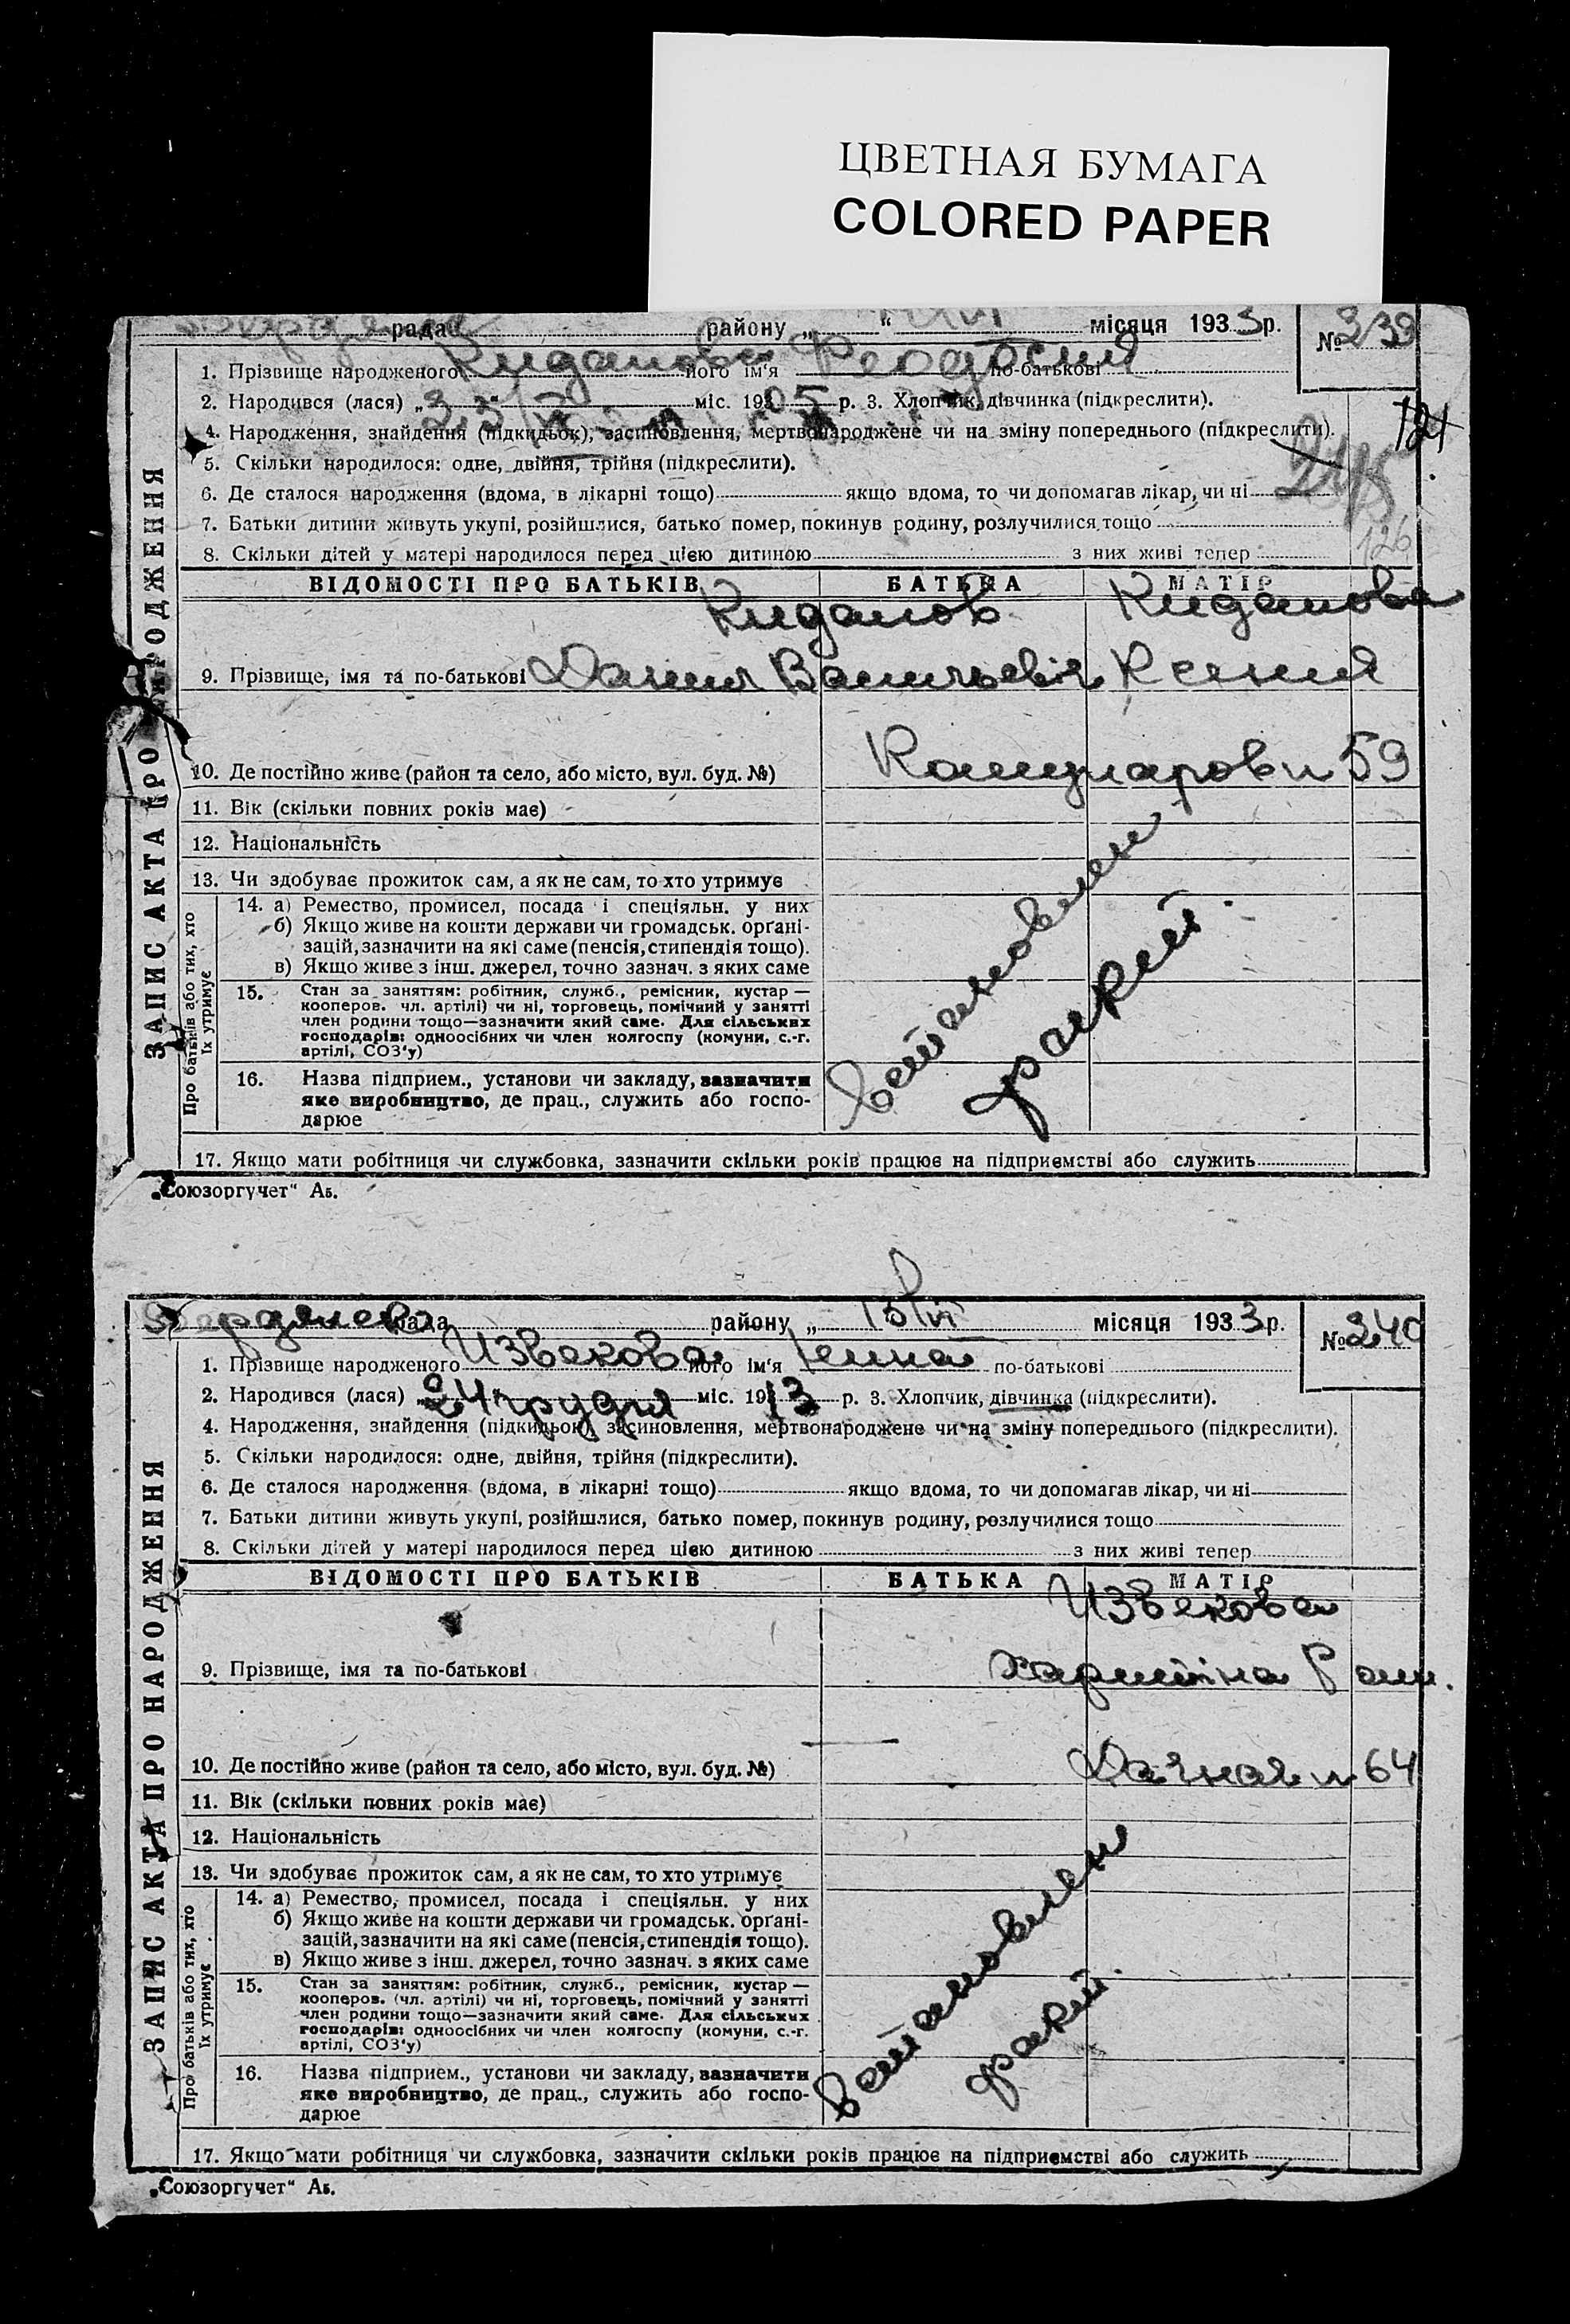 ЦВЕТНАЯ БУМАГА
COLORED PAPER
рада района „ “ місяця 1933 р. № 239
1. Прізвище народженого Киданова його ім'я Феодосия по-батькові
2. Народився (лася) „ “ міс. 1905 р. 3. Хлопчик, дівчинка (підкреслити).
121
4. Народження, знайдення (підкидьок), засиновлення, мертвонароджене чи на зміну попереднього (підкреслити).
5. Скільки народилося: одне, двійня, трійня (підкреслити).
6. Де сталося народження (вдома, в лікарні тощо) якщо вдома, то чи допомагав лікар, чи ні
7. Батьки дитини живуть укупі, розійшлися, батько помер, покинув родину, розлучилися тощо
126
8. Скільки дітей у матері народилося перед цією дитиною з них живі тепер
ВІДОМОСТІ ПРО БАТЬКІВ БАТЬКА МАТІР
Киданов Киданова
9. Прізвище, імя та по-батькові Данил Васильевіч Ксения
10. Де постійно живе (район та село, або місто, вул. буд. №) 59
11. Вік (скільки повних років має)
12. Національність
13. Чи здобуває прожиток сам, а як не сам, то хто утримує
14. а) Ремество, промисел, посада і спеціяльн. у них
б) Якщо живе на кошти держави чи громадськ. орґані-
зацій, зазначити на які саме (пенсія, стипендія тощо).
в) Якщо живе з інш. джерел, точно зазнач. з яких саме
15. Стан за заняттям: робітник, служб., ремісник, кустар —
кооперов. чл. артілі) чи ні, торговець, помічний у занятті
член родини тощо—зазначити який саме. Для сільських
господарів: одноосібних чи член колгоспу (комуни, с.-г.
артілі, СОЗ'у)
16. Назва підприєм., установи чи закладу, зазначити
яке виробництво, де прац., служить або госпо-
дарює
Встановлен
факт.
17. Якщо мати робітниця чи службовка, зазначити скільки років працює на підприємстві або служить
Про батьків або тих, хто
їх утримує
ЗАПИС АКТА ПРО НАРОДЖЕННЯ
„Союзоргучет“ Аб.
Бердянськ рада району „ “ місяця 1933 р. № 240
1. Прізвище народженого Извекова його ім'я по-батькові
2. Народився (лася) „24“ грудня міс. 1913 р. 3. Хлопчик, дівчинка (підкреслити).
4. Народження, знайдення (підкидьок), засиновлення, мертвонароджене чи на зміну попереднього (підкреслити).
5. Скільки народилося: одне, двійня, трійня (підкреслити).
6. Де сталося народження (вдома, в лікарні тощо) якщо вдома, то чи допомагав лікар, чи ні
7. Батьки дитини живуть укупі, розійшлися, батько помер, покинув родину, розлучилися тощо
8. Скільки дітей у матері народилося перед цією дитиною з них живі тепер
ВІДОМОСТІ ПРО БАТЬКІВ БАТЬКА МАТІР
Извекова
9. Прізвище, імя та по-батькові Харитіна
10. Де постійно живе (район та село, або місто, вул. буд. №) Дачная 64
11. Вік (скільки повних років має)
12. Національність
13. Чи здобуває прожиток сам, а як не сам, то хто утримує
14. а) Ремество, промисел, посада і спеціяльн. у них
б) Якщо живе на кошти держави чи громадськ. орґані-
зацій, зазначити на які саме (пенсія, стипендія тощо).
в) Якщо живе з інш. джерел, точно зазнач. з яких саме
15. Стан за заняттям: робітник, служб., ремісник, кустар —
кооперов. (чл. артілі) чи ні, торговець, помічний у занятті
член родини тощо—зазначити який саме. Для сільських
господарів: одноосібних чи член колгоспу (комуни, с.-г.
артілі, СОЗ'у)
16. Назва підприєм., установи чи закладу, зазначити
яке виробництво, де прац., служить або госпо-
дарює
Встановлен
факт.
17. Якщо мати робітниця чи службовка, зазначити скільки років працює на підприємстві або служить
Про батьків або тих, хто
їх утримує
ЗАПИС АКТА ПРО НАРОДЖЕННЯ
„Союзоргучет“ Аб.